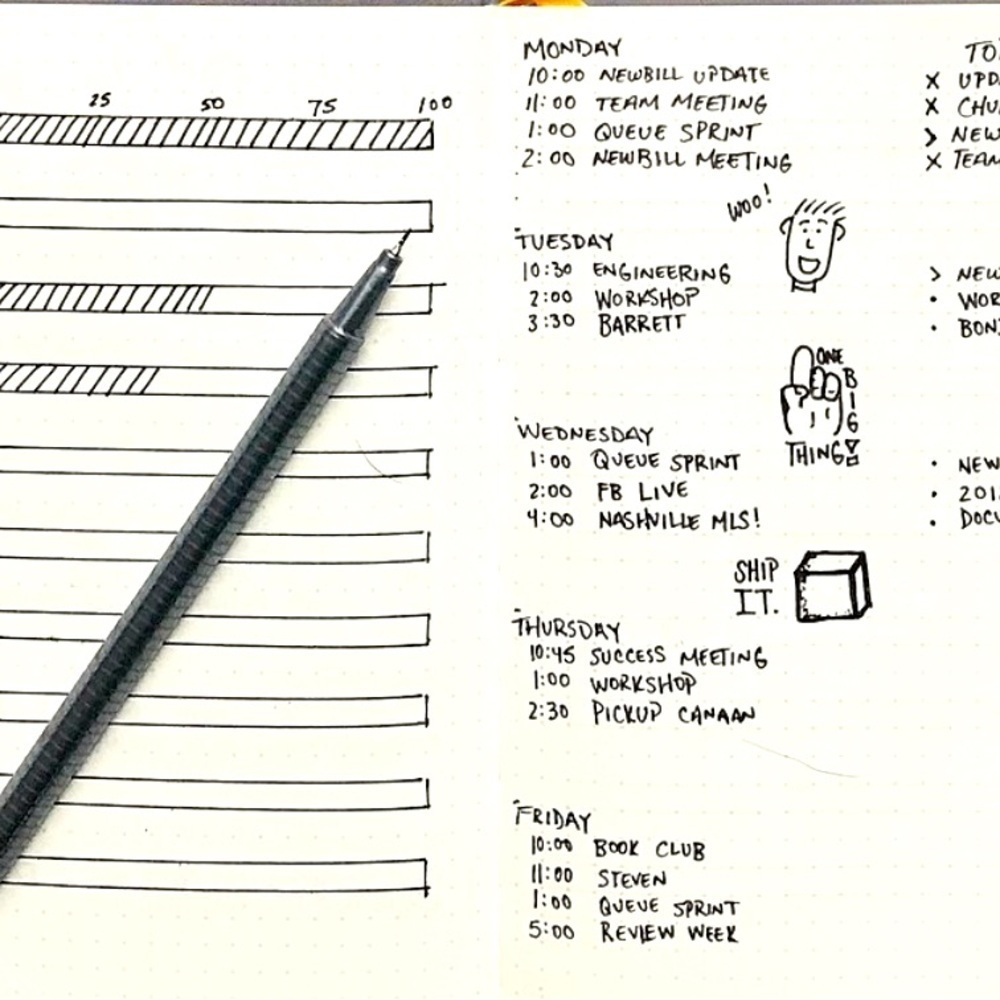 25 50 75 100
MONDAY
10:00 NEWBILL UPDATE
11:00 TEAM MEETING
1:00 QUEUE SPRINT
2:00 NEWBILL MEETING
WOO!
TUESDAY
10:30 ENGINEERING
2:00 WORKSHOP
3:30 BARRETT
ONE
BIG
THING!
WEDNESDAY
1:00 QUEUE SPRINT
2:00 FB LIVE
4:00 NASHVILLE MLS!
SHIP
IT.
THURSDAY
10:45 SUCCESS MEETING
1:00 WORKSHOP
2:30 PICKUP CANAAN
FRIDAY
10:00 BOOK CLUB
11:00 STEVEN
1:00 QUEUE SPRINT
5:00 REVIEW WEEK
X TEAM
> NEW